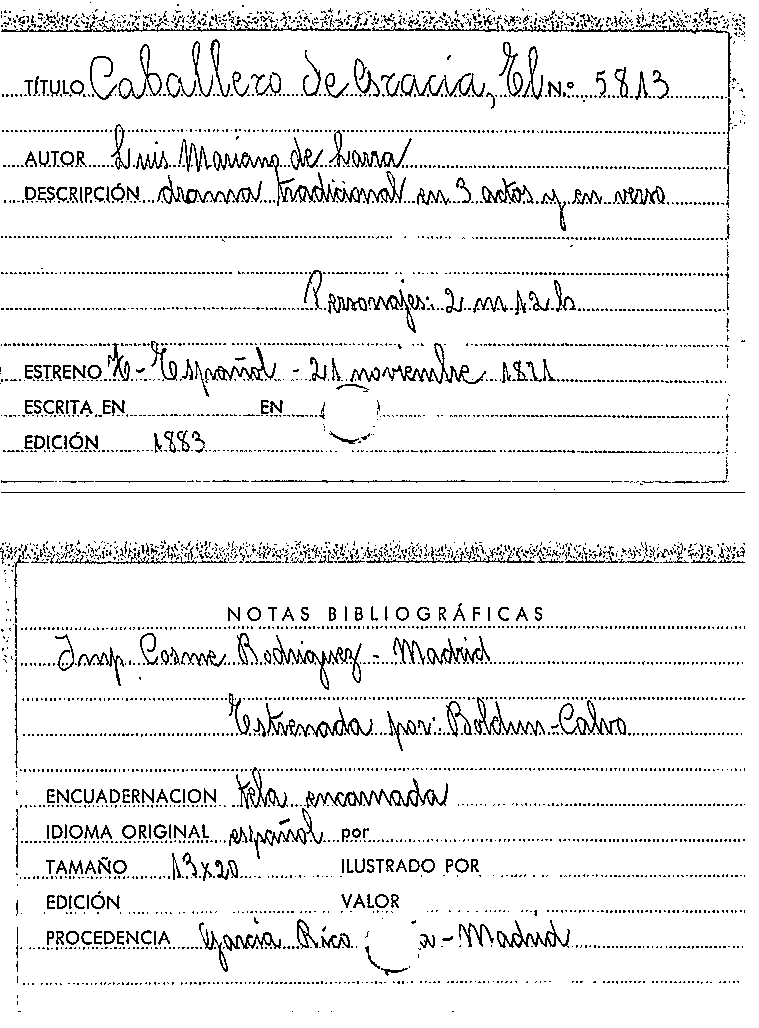 TÍTULO Caballero de Gracia, El N.º 5813
AUTOR Luis Mariano de Larra
DESCRIPCIÓN drama tradicional en 3 actos y en verso
Personajes: 2 m 12 h
ESTRENO T- Español - 21 noviembre 1871
ESCRITA EN EN
EDICIÓN 1883
NOTAS BIBLIOGRÁFICAS
Imp. Cosme Rodriguez - Madrid
Estrenada por: Boldun-Calvo
ENCUADERNACION tela encarnada
IDIOMA ORIGINAL español por
TAMAÑO 13x20 ILUSTRADO POR
EDICIÓN VALOR
PROCEDENCIA García Rico - Madrid